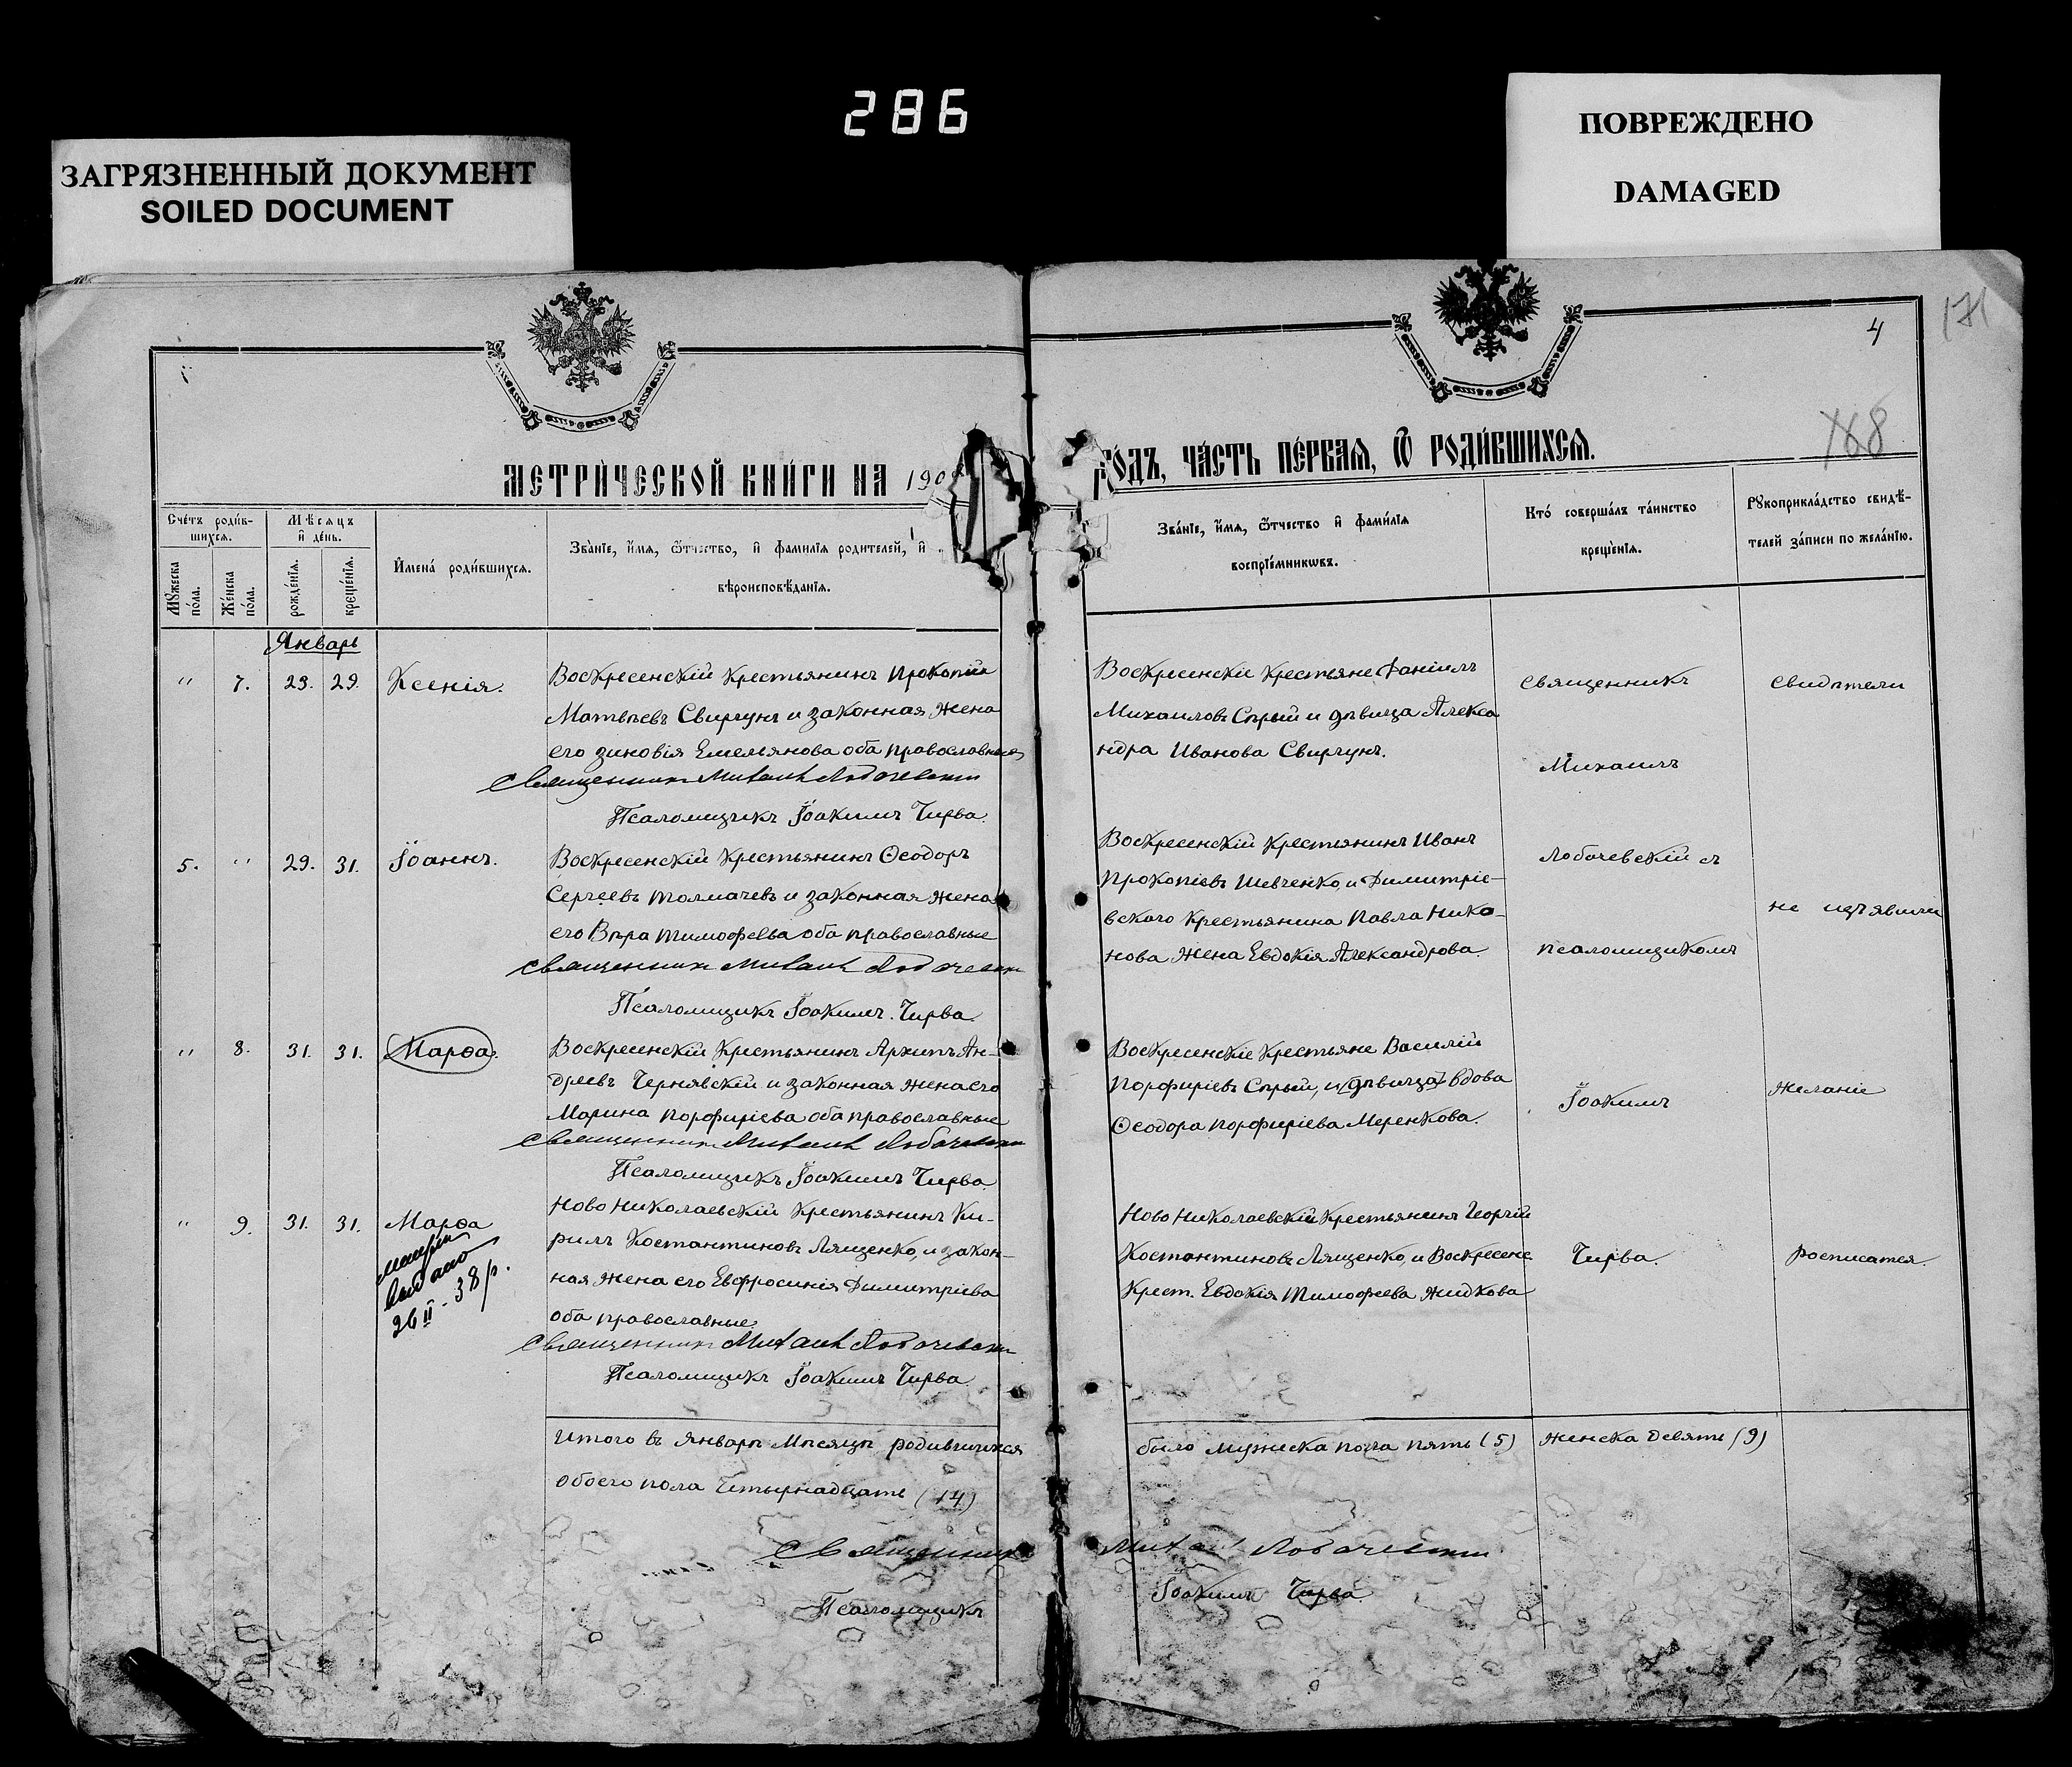 286
ЗАГРЯЗНЕННЫЙ ДОКУМЕНТ
SOILED DOCUMENT
ПОВРЕЖДЕНО
DAMAGED
171
4
168
МЕТРИЧЕСКОЙ КНИГИ НА 190
ГОДЪ, ЧАСТЬ ПЕРВАЯ, Ѿ РОДИВШИХСЯ.
Счетъ родив-
шихся.
Мужеска
пола.
Женска
пола.
Мѣсяцъ
и день.
рожденія.
крещенія.
Имена родившихся.
Званіе, имя, ѿчество, и фамилія родителей, и
вѣроисповѣданія.
Званіе, имя, ѿчество и фамилія
воспріемниковъ.
Кто совершалъ таинство
крещенія.
Рукоприкладство свидѣ-
телей записи по желанію.
Январь
" 7. 23. 29. Ксенія.
Воскресенскій Крестьянинъ Прокопій
Матвѣевъ Свиргунъ и законная жена
его Зиновія Емельянова оба православные
Священникъ Михаилъ Лобачевскій
Псаломщикъ Іоакимъ Чирва.
Воскресенскіе Крестьяне Даніилъ
Михаиловъ Сѣрый и дѣвица Алекса
ндра Иванова Свиргунъ.
5. " 29. 31. Іоаннъ.
Воскресенскій Крестьянинъ Ѳеодоръ
Сергѣевъ Толмачевъ и законная жена
его Вѣра Тимофеева оба православные
Священникъ Михаилъ Лобачевскій
Псаломщикъ Іоакимъ Чирва.
Воскресенскій Крестьянинъ Иванъ
Прокопіевъ Шевченко, и Димитріе-
вского Крестьянина Павла Нико-
нова жена Евдокія Александрова.
" 8. 31. 31. Марѳа.
Воскресенскій Крестьянинъ Архипъ Ан-
дреевъ Чернявскій и законная жена его
Марина Порфиріева оба православные
Священникъ Михаилъ Лобачевскій
Псаломщикъ Іоакимъ Чирва.
Воскресенскіе Крестьяне Василій
Порфиріевъ Сѣрый, и (дѣвица) вдова
Ѳеодора Порфиріева Меренкова.
" 9. 31. 31. Марѳа
выдано
26 II - 38 р.
Ново Николаевскій Крестьянинъ Ки-
рилъ Костантиновъ Лященко, и закон-
ная жена его Евфросинія Димитріева
оба православные.
Священникъ Михаилъ Лобачевскій
Псаломщикъ Іоакимъ Чирва
Ново Николаевскій Крестьянинъ Георгій
Костантиновъ Лященко, и Воскресенс
Крест. Евдокія Тимофеева Жидкова
Священникъ
Михаилъ
Лобачевскій съ
псаломщикомъ
Іоакимъ
Чирва.
Свидѣтели
не изъявили
желаніе
росписатся.
Итого въ Январѣ Мѣсяцѣ родившихся
обоего пола четырнадцать (14)
было мужска пола пять (5) женска девять (9)
Священникъ Михаилъ Лобачевскій
Псаломщикъ Іоакимъ Чирва